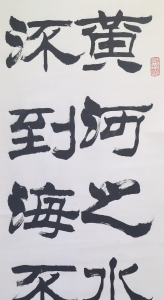 黄河之水
流到海不